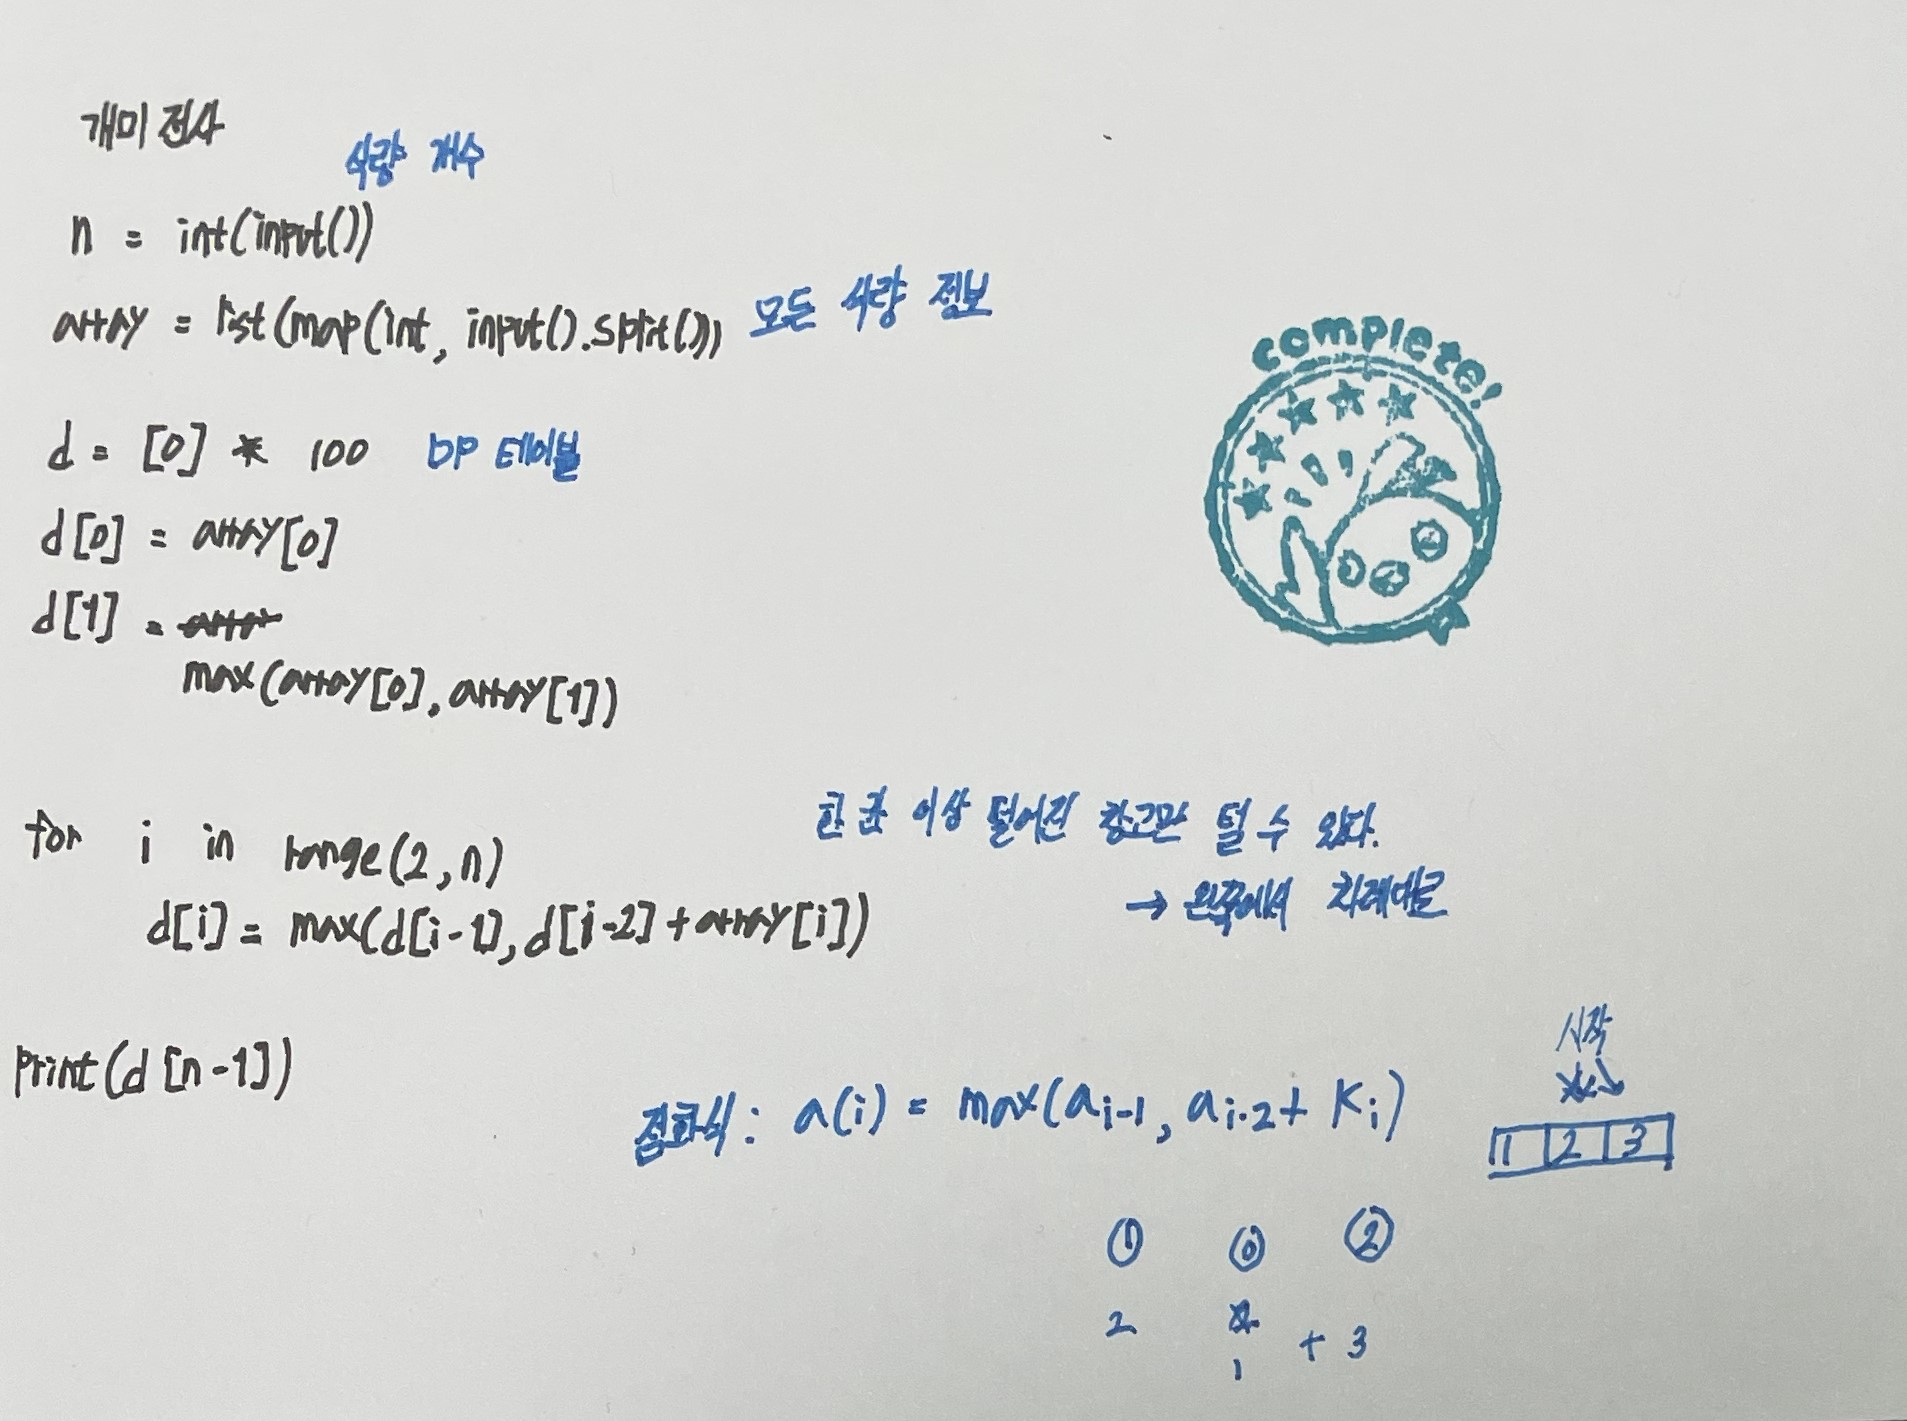 개미 전사
식량 개수
n = int(input())
array = list(map(int, input().split())) 모든 식량 정보
complete!
d = [0] * 100 DP 테이블
d[0] = array[0]
d[1] =
max(array[0], array[1])
for i in range(2, n)
한 칸 이상 떨어진 창고만 털 수 있다.
d[i] = max(d[i-1], d[i-2] + array[i])
→ 왼쪽에서 차례대로
print(d[n-1])
시작
점화식 : a(i) = max(ai-1, ai-2 + Ki)
1 2 3
① ⓪ ②
2 1 + 3